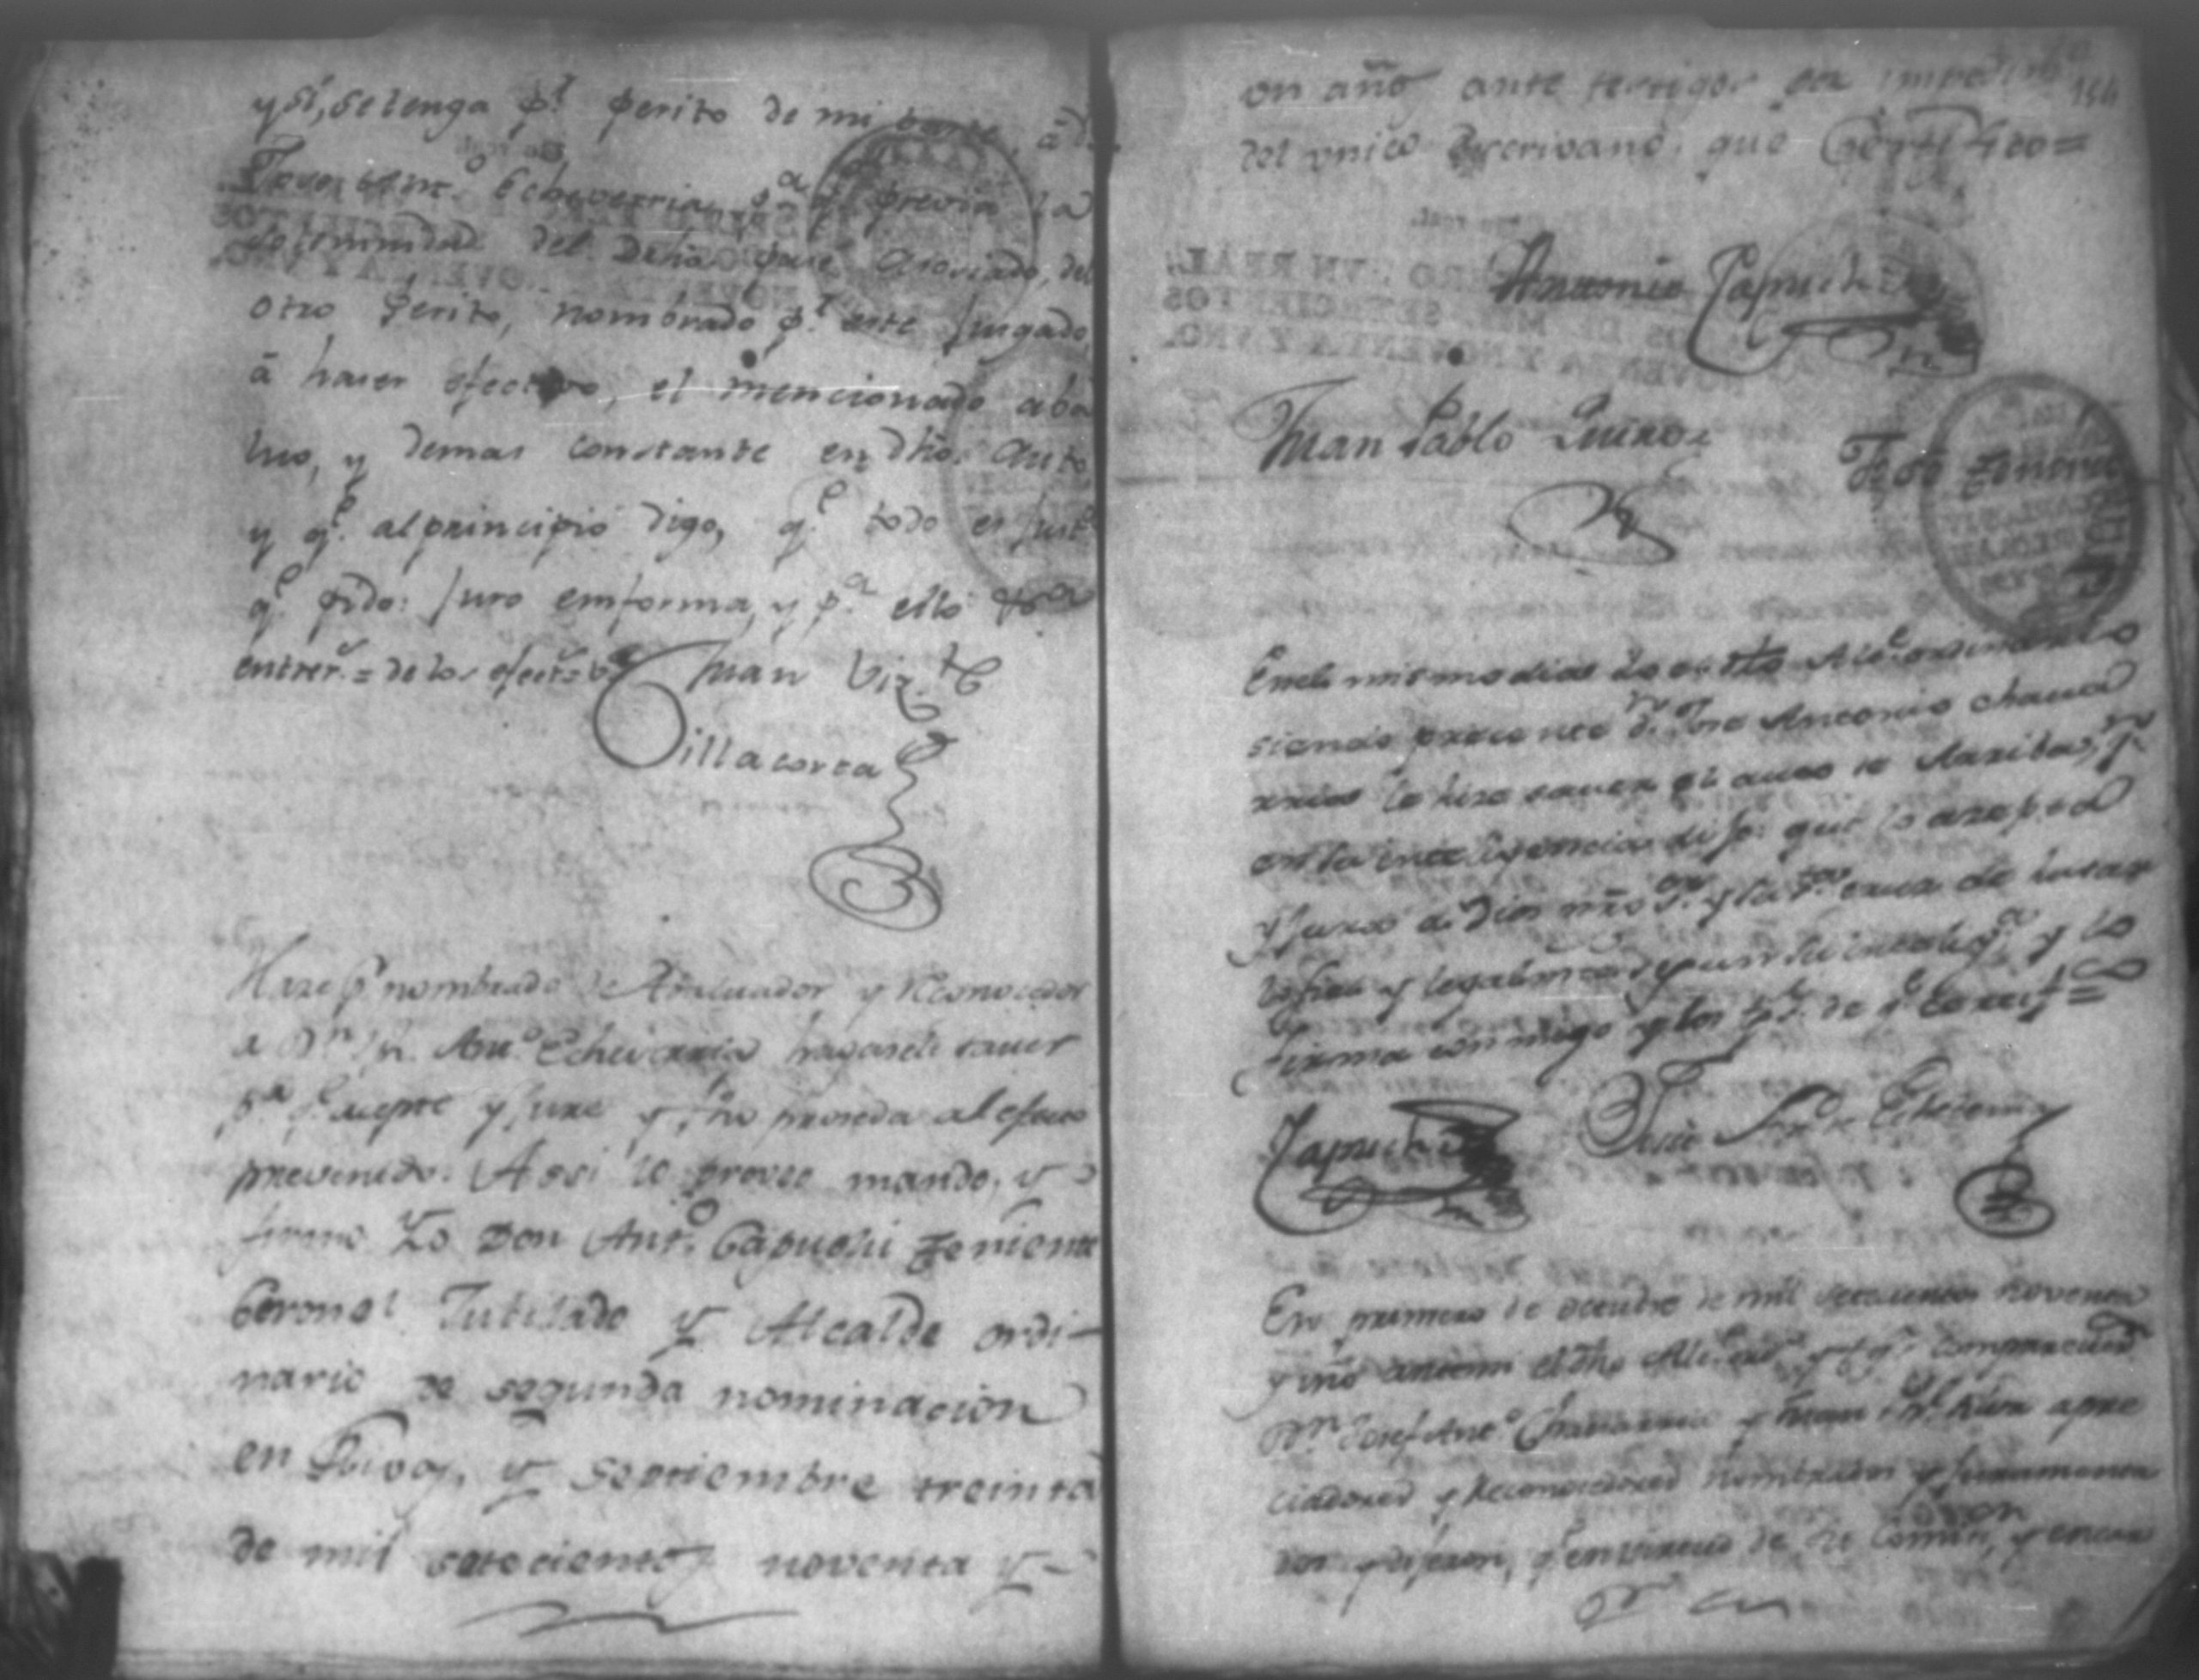 y sí, se tenga pr. perito de mi parte, á
Jose Antº. Echeverria, pª. qe. previa la
solemnidad del Dehº. pase asociado, del
otro perito, nombrado pr. este Jusgado,
á haser efectivo, el mencionado aba
luo, y demas constante en dhō. Auto,
y qe. al principio digo, qe. todo es Justª
qe. pido: Juro emforma, y pª. ello
entrerrs. = de los efectos =
Juan Vizte
Villacorta
Hase pr nombrado de Abaluador y Reconocedor
a Dn. Jph. Antº. Echeverria hagasele saver
pª. qe. acepte y Jure y fhō proseda al efecto
prevenido. Assi lo proveo mando, y
firmo Yo Don Antº. Capuchi Teniente
Coronel Jubilado y Alcalde ordi-
nario de segunda nominacion
en Rivas, y septiembre treinta
de mil setecientos noventa y-
un año ante testigos por impedimtº
del unico Escrivano. que Certifico=
Antonio Capuchi
Juan Pablo Quiros
José
En el mismo dia Yo el dho Alce. ordinario
siendo presente Dn. Jose Antonio chaua
rria le hize saver el auto de Arriba, y
en su inteligencia dijo: que lo azepta
y Jura a Dios nrō Sr. y la Sta. cruz de husar
lo fiel y legalmte segun su inteligª. y lo
firma conmigo y los tgs. de qe. Certifº=
Capuchi
José Antº. de Echeverria
En primero de octubre de mil setesientos noventa
y uno antemi el dho Alce. ordº. y tgs. comparecieron
Dn. Josef Antº. Chavarria y Juan apre
ciadores y Reconocedores nombrados y Juramenta
dos y dijeron, qe. en virtud de su Comisn., y encar